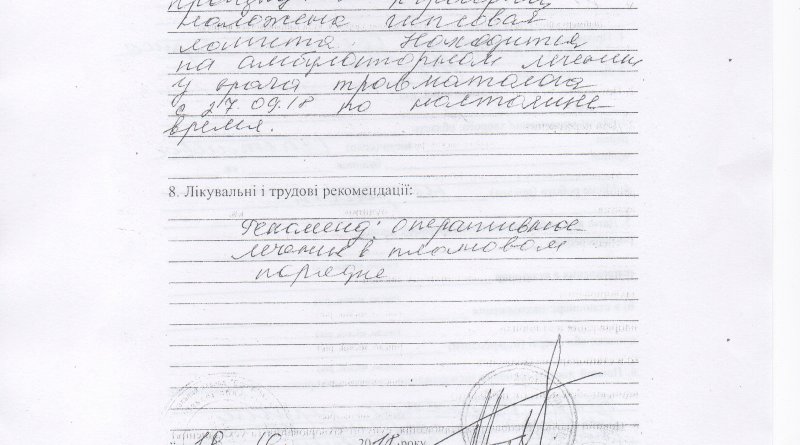 наложена гипсовая
лонгета. Находится
на амбулаторном лечении
у врача травматолога
с 27.09.18 по настоящее
время.
8. Лікувальні і трудові рекомендації:
Рекоменд: оперативное
лечение в плановом
порядке
20 року